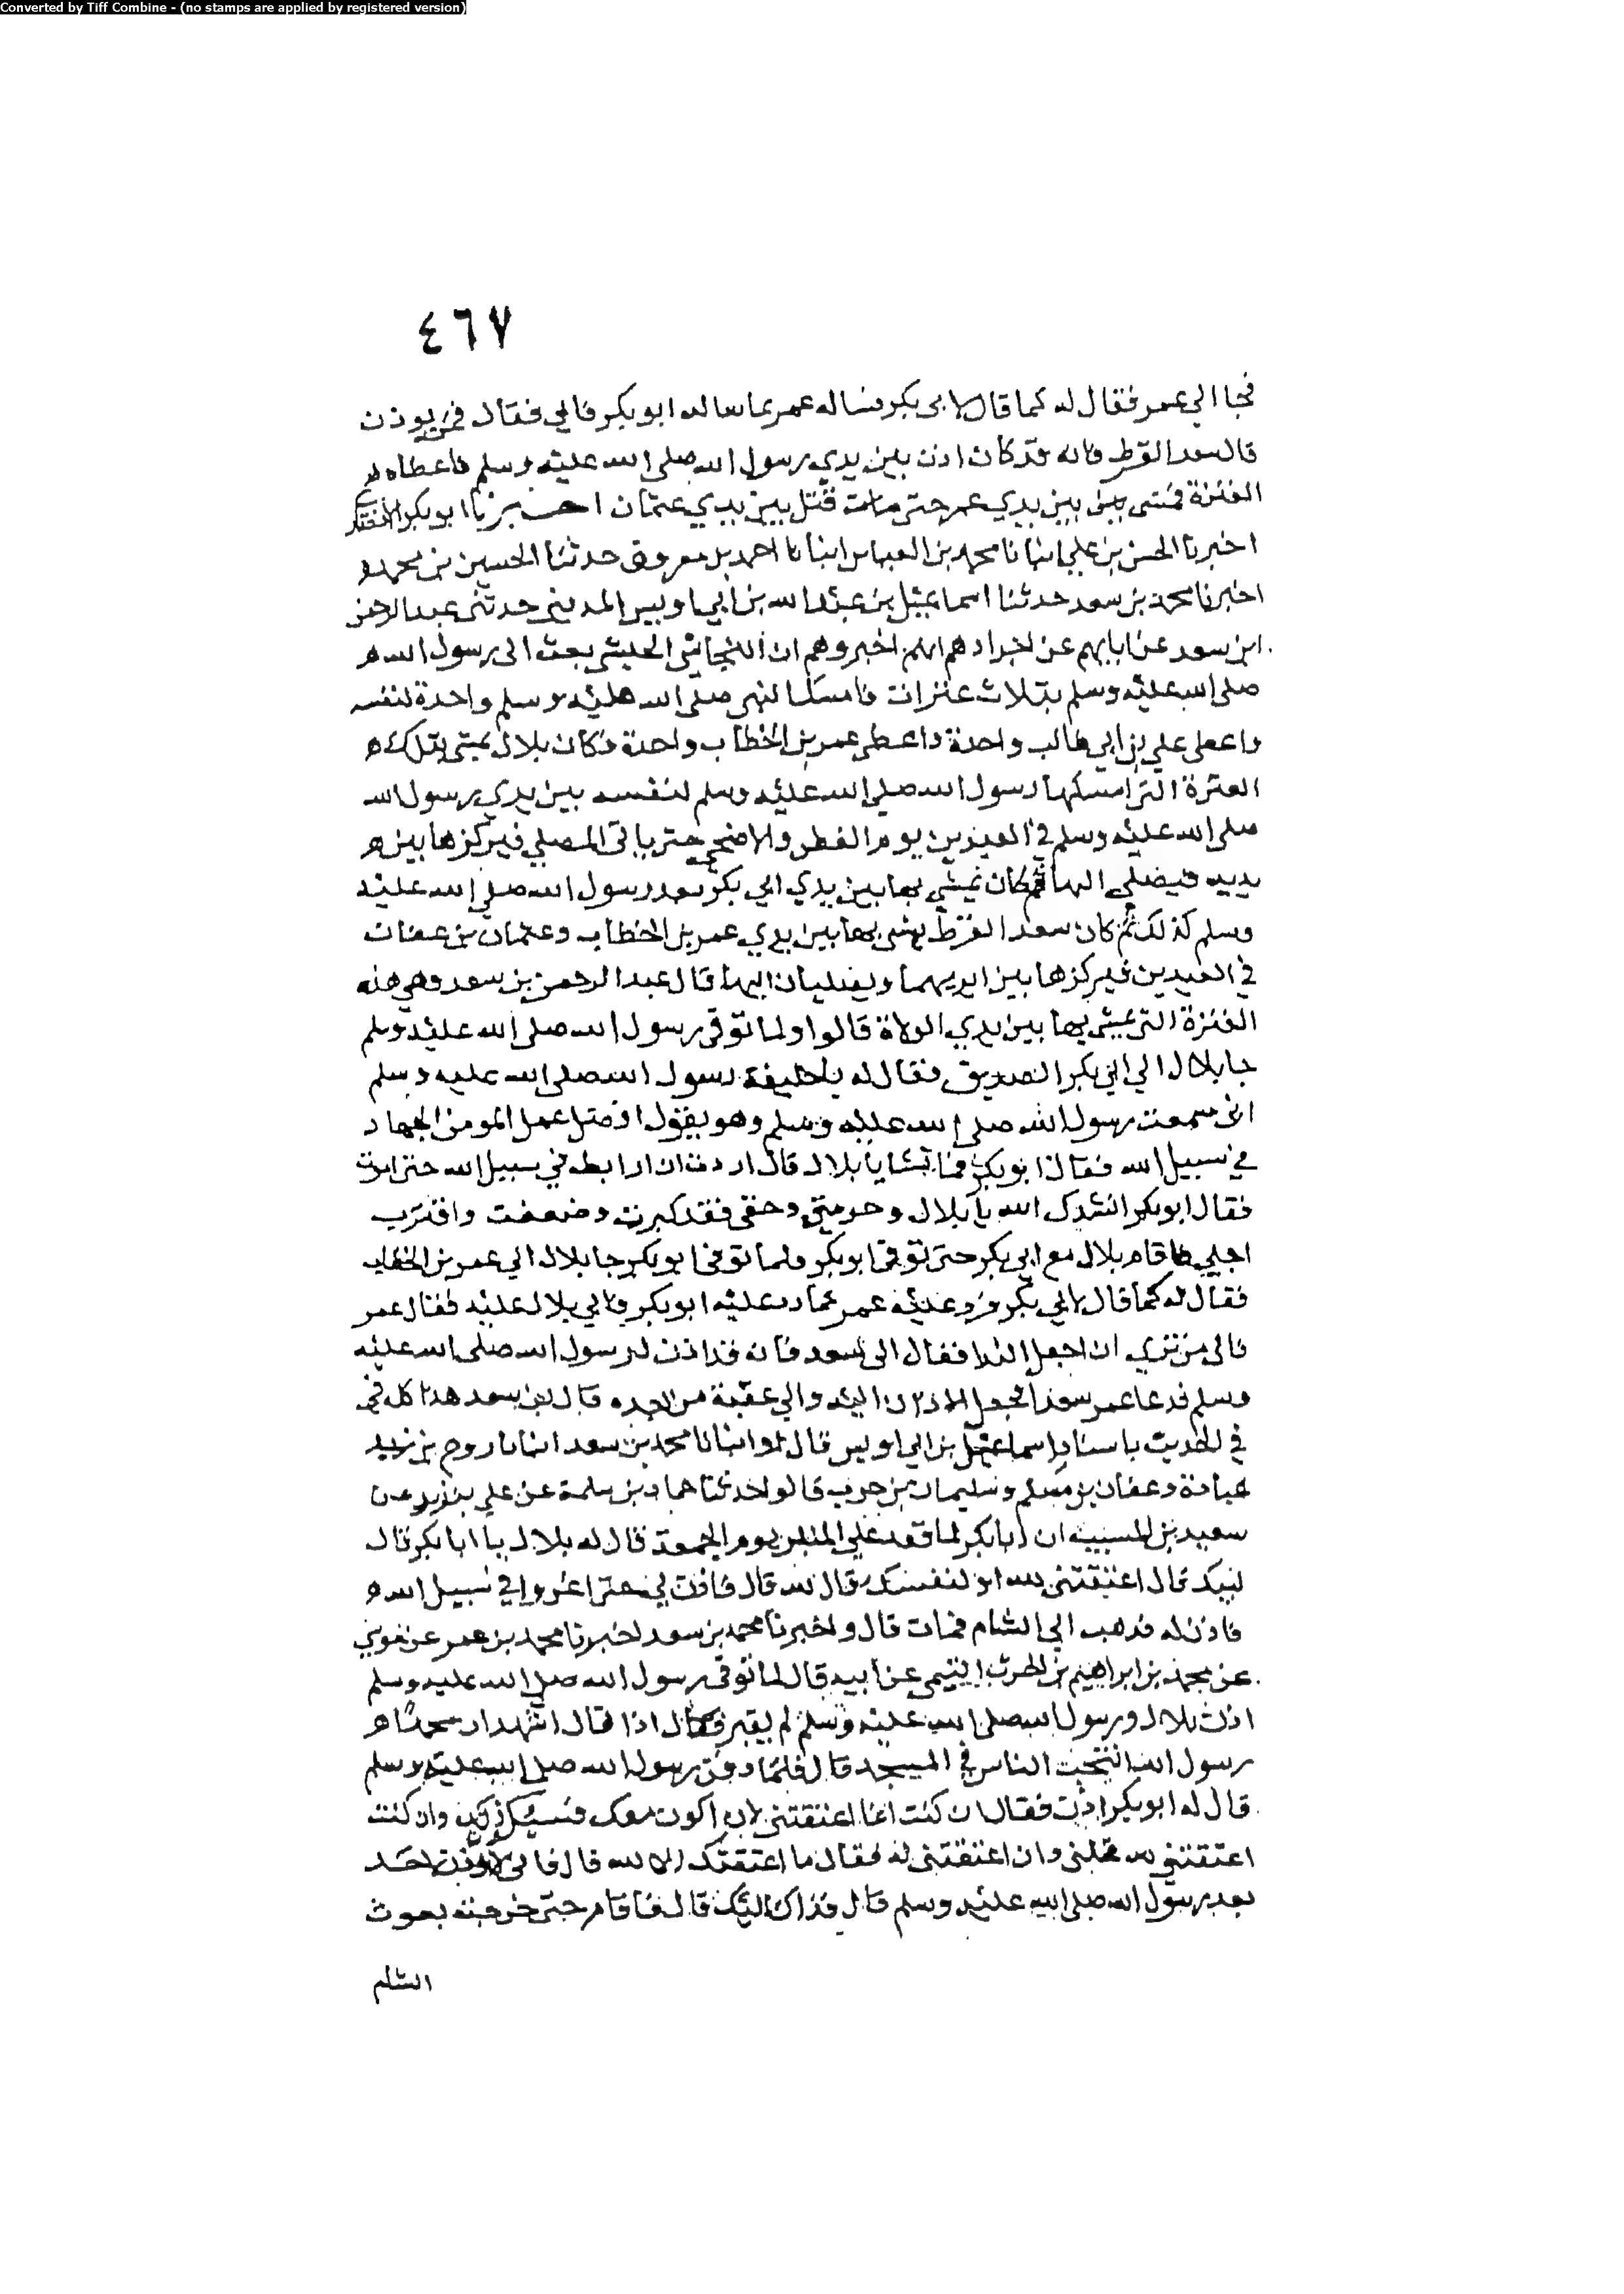 Converted by Tiff Combine - (no stamps are applied by registered version)
٤٦٧
فجا الي عمر فقال له كما قال لابي بكر فساله عمر بما ساله ابو بكر فابي فقال فمن يوذن
قال سعد القرط فانه قد كان اذن بين يدي رسول الله صلى الله عليه وسلم فاعطاه
العنزة فمشى بين يدي عمر حتى مات قتل بين يدي عثمان اخبرنا ابو بكر
اخبرنا الحسن بن علي انبانا محمد بن العباس انبانا احمد بن معروف حدثنا الحسين بن محمد
اخبرنا محمد بن سعد حدثنا اسماعيل بن عبد الله بن ابي اويس المديني حدثني عبد الرحمن
ابن سعد عن ابايهم عن اجدادهم انهم اخبروهم ان النجاشي الحبشي بعث الى رسول الله
صلى الله عليه وسلم بثلاث عنزات فامسك النبي صلى الله عليه وسلم واحدة لنفسه
واعطى علي بن ابي طالب واحدة واعطى عمر بن الخطاب واحدة فكان بلال يمشي بتلك
العنزة التي امسكها رسول الله صلى الله عليه وسلم لنفسه بين يدي رسول الله
صلى الله عليه وسلم في العيدين يوم الفطر والاضحى حتى ياتى المصلي فيركزها بين
يديه فيصلي اليها ثم كان يمشي بها بين يدي ابي بكر بعد رسول الله صلى الله عليه
وسلم كذلك ثم كان سعد القرظ يمشي بها بين يدي عمر بن الخطاب وعثمان بن عفان
في العيدين فيركزها بين ايديهما ويصليان اليها قال عبد الرحمن بن سعد وهي هذه
العنزة التى يمشى بها بين يدي الولاة قالوا ولما توفى رسول الله صلى الله عليه وسلم
جا بلال الي ابي بكر الصديق فقال له يا خليفة رسول الله صلى الله عليه وسلم
انى سمعت رسول الله صلى الله عليه وسلم وهو يقول افضل عمل المومن الجهاد
في سبيل الله فقال ابو بكر فما تشا يا بلال قال اردت ان ارابط في سبيل الله حتى اموت
فقال ابو بكر انشدك الله يا بلال وحرمتي وحقي فقد كبرت وضعفت واقترب
اجلي فاقام بلال مع ابي بكر حتى توفى ابو بكر فلما توفى ابو بكر جا بلال الي عمر بن الخطاب
فقال له كما قال لابي بكر فرد عليه عمر كما رد عليه ابو بكر فابي بلال عليه فقال عمر
فالى من ترى ان اجعل الندا فقال الى سعد فانه قد اذن لرسول الله صلى الله عليه
وسلم فدعا عمر سعدا فجعل الاذان اليه والي عقبه من بعده قال ابن سعد هذا كله في
في الحديث باسناد اسماعيل بن ابي اويس قال وانبانا محمد بن سعد انبانا روح بن
عبادة وعفان بن مسلم وسليمان بن حرب قالوا حدثنا حماد بن سلمة عن علي بن زيد عن
سعيد بن المسيب ان ابا بكر لما قعد علي المنبر يوم الجمعة قال له بلال يا ابا بكر قال
لبيك قال اعتقتني لله او لنفسك قال لله قال فاذن لي حتى اغزوا في سبيل الله
فاذن له فذهب الى الشام فمات قال واخبرنا محمد بن سعد اخبرنا محمد بن عمر عن موسي
عن محمد بن ابراهيم بن الحرث التيمي عن ابيه قال لما توفى رسول الله صلى الله عليه وسلم
اذن بلال ورسول الله صلى الله عليه وسلم لم يقبر فكان اذا قال اشهد ان محمدا
رسول الله انتحب الناس في المسجد قال فلما دفن رسول الله صلى الله عليه وسلم
قال له ابو بكر اذن فقال ان كنت انما اعتقتني لان اكون معك فسبيل ذلك وان كنت
اعتقتني لله فخلني وان اعتقتني له فقال ما اعتقتك الا لله قال فاني لا اوذن لاحد
بعد رسول الله صلى الله عليه وسلم قال فذاك اليك قال فاقام حتى خرجت بعوث
الشام